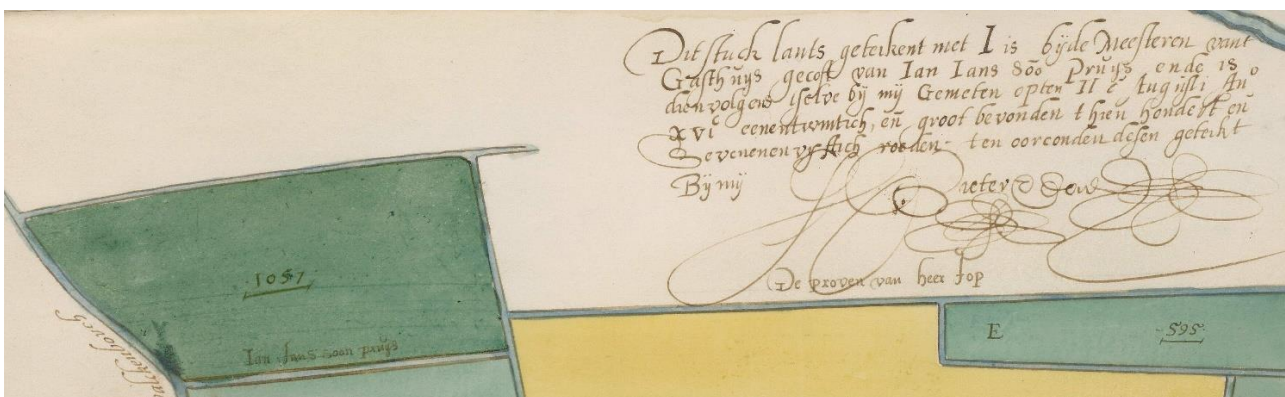 Dit stuck lants geteikent met I is bijde Meesteren vant
Gasthuijs gecoft van Ian Ians sōō Pruijs ende is
dienvolgens tselve bij mij Gemeten opten II ē Augusti Anᵒ
XVIᶜ eenentwintich, eñ groot bevonden thien hondert eñ
Sevenenvijftich roeden. ten oorconden desen geteikt
Bij mij Pieter
De proven van heer Jop
1057
E 595
Ian Jans soon pruijs